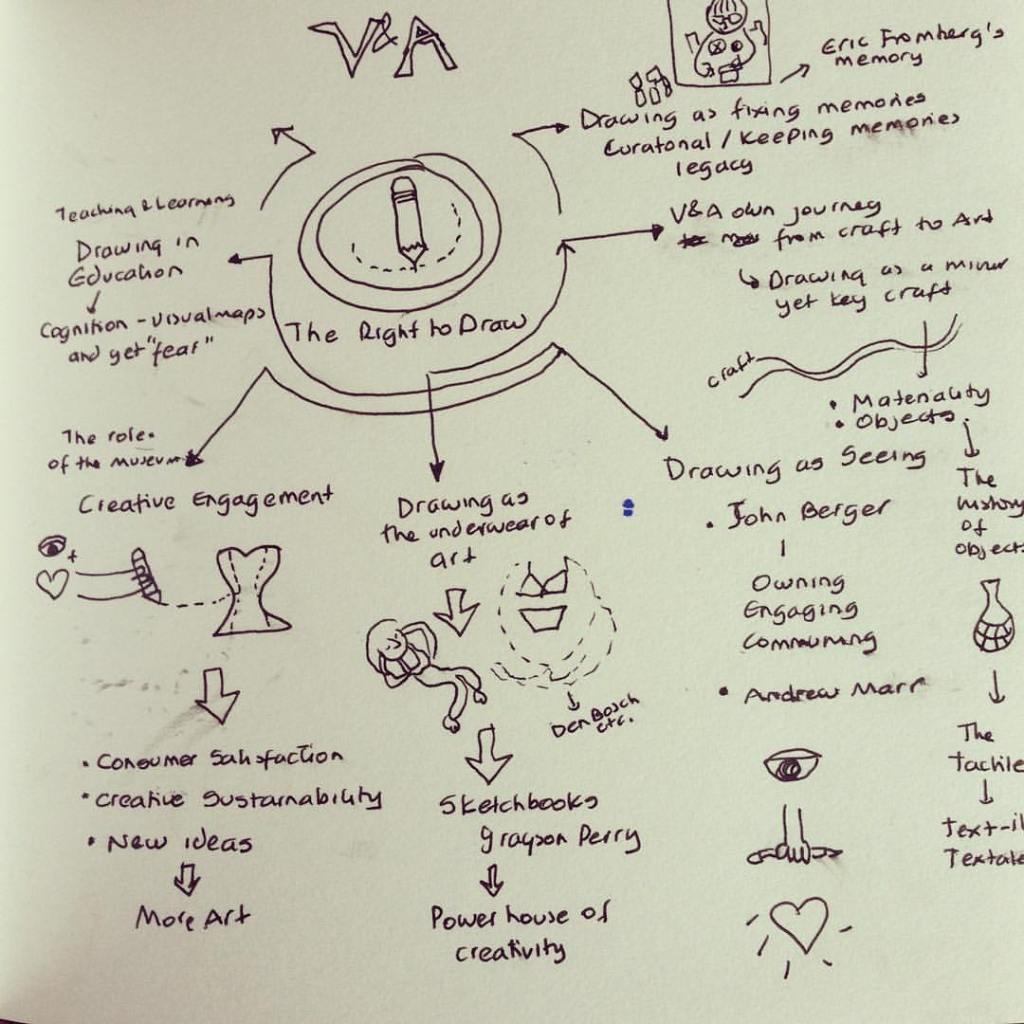 V&A
Eric Fromberg's
memory
Drawing as fixing memories
Curatonal / Keeping memories
legacy
V&A own journey
from craft to Art
Drawing as a minor
yet key craft
craft
• Materiality
• Objects.
The
history
of
objects
The
tactile
text-il
Textale
Teaching & Learning
Drawing in
Education
Cognition - visual maps
and yet "fear"
The Right to Draw
The role.
of the museum
Creative Engagement
+
• Consumer Satisfaction
• Creative Sustainability
• New ideas
More Art
Drawing as
the underwear of
art
Den Bosch
etc.
Sketchbooks
Grayson Perry
Power house of
creativity
Drawing as Seeing
• John Berger
Owning
Engaging
Communing
• Andrew Marr